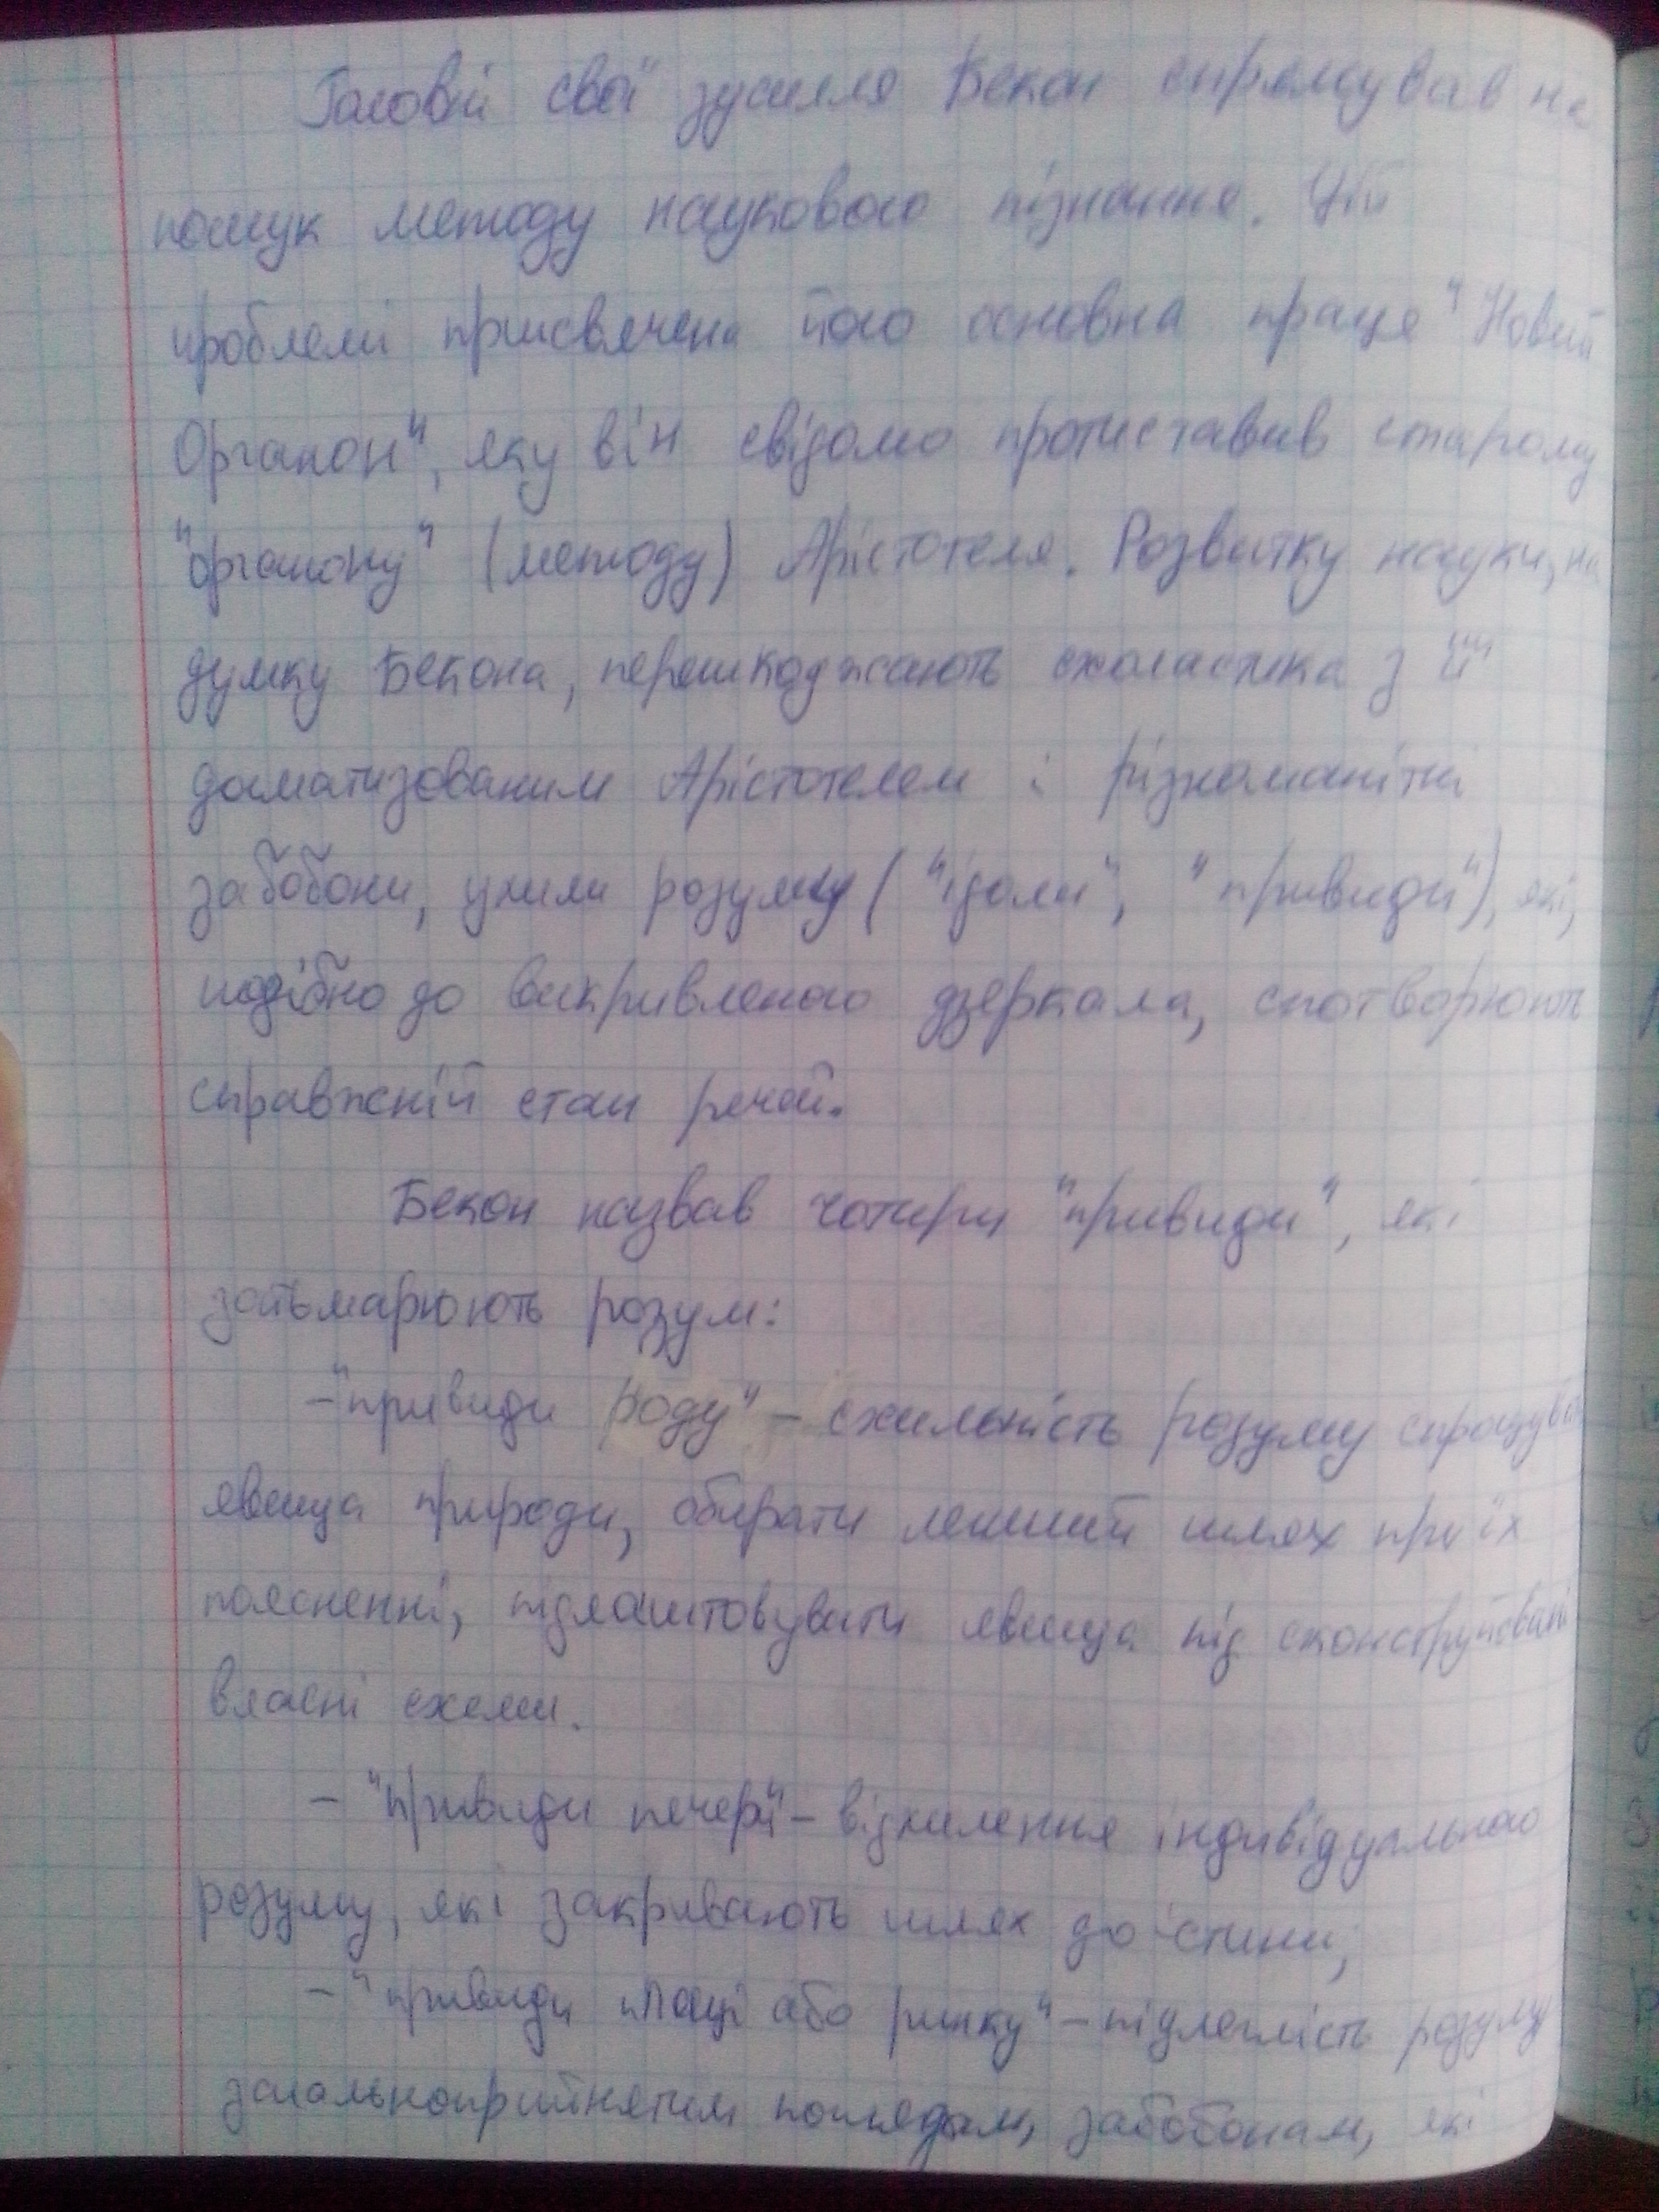 Головні свої зусилля Бекон спрямував на
пошук методу наукового пізнання. Цій
проблемі присвячена його основна праця "Новий
Органон", яку він свідомо протиставив старому
"органону" (методу) Арістотеля. Розвитку науки, на
думку Бекона, перешкоджають схоластика з її
догматизованим Арістотелем і різноманітні
забобони, ухили розуму ("ідоли", "привиди"), які,
подібно до викривленого дзеркала, спотворюють
справжній стан речей.
Бекон назвав чотири "привиди", які
затьмарюють розум:
- "привиди роду" - схильність розуму спрощувати
явища природи, обирати легший шлях при їх
поясненні, підлаштовувати явища під сконструйовані
власні схеми.
- "привиди печери" - відхилення індивідуального
розуму, які закривають шлях до істини;
- "привиди площі або ринку" - підлеглість розуму
загальноприйнятим поглядам, забобонам, які